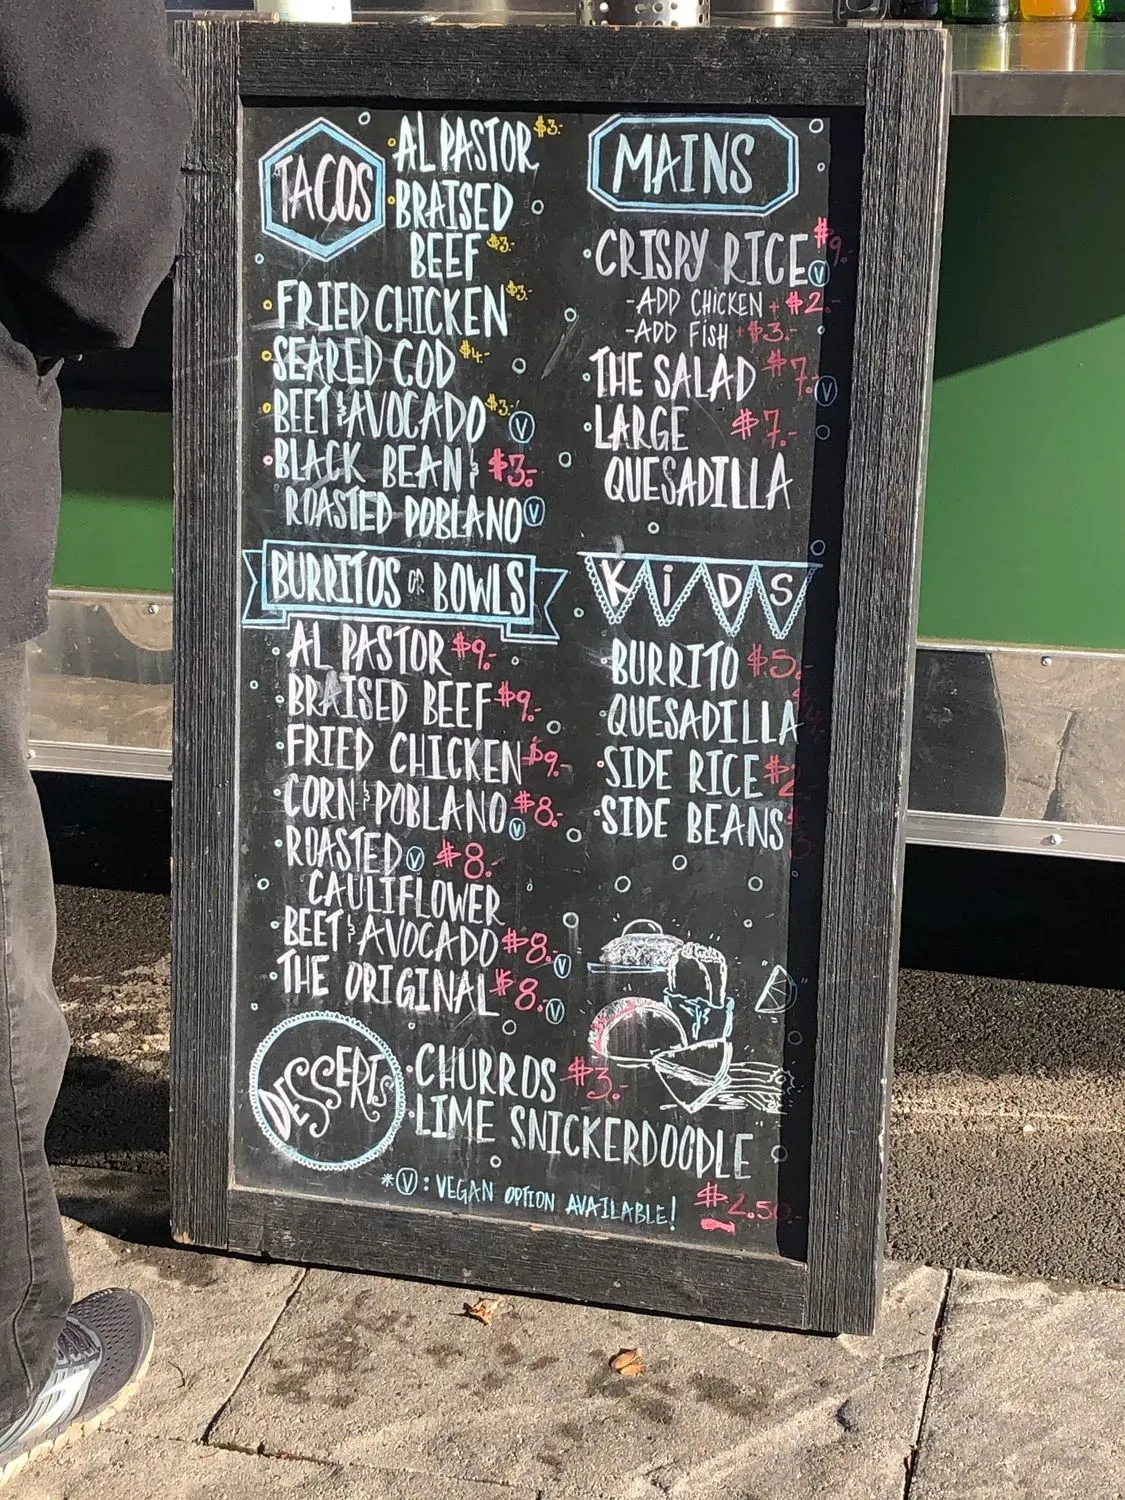 TACOS
AL PASTOR $3.-
BRAISED
BEEF $3.-
FRIED CHICKEN $3.-
SEARED COD $4.-
BEET & AVOCADO $3.- V
BLACK BEAN & $3.-
ROASTED POBLANO V
BURRITOS OR BOWLS
AL PASTOR $9.-
BRAISED BEEF $9.-
FRIED CHICKEN $9.-
CORN & POBLANO $8.- V
ROASTED V $8.-
CAULIFLOWER
BEET & AVOCADO $8.- V
THE ORIGINAL $8.- V
DESSERTS
CHURROS $3.-
LIME SNICKERDOODLE
$2.50.-
*V: VEGAN OPTION AVAILABLE!
MAINS
CRISPY RICE $9.- V
-ADD CHICKEN + $2.-
-ADD FISH + $3.-
THE SALAD $7.- V
LARGE $7.-
QUESADILLA
KiDS
BURRITO $5.-
QUESADILLA
SIDE RICE $2
SIDE BEANS